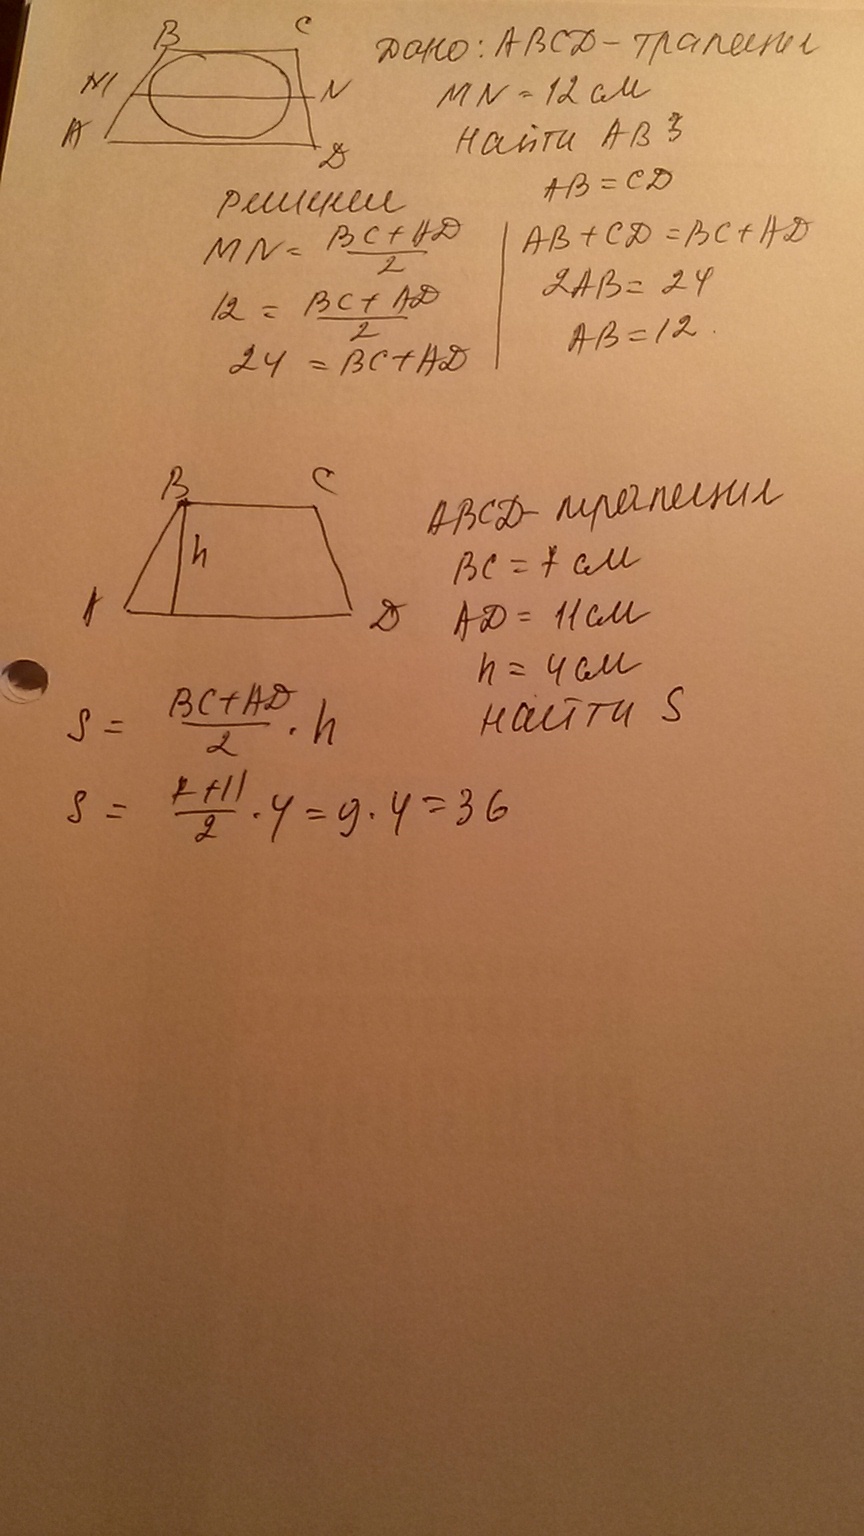 B C
M N
A D
Дано: ABCD - трапеция
MN = 12 см
Найти AB
AB = CD
Решение
MN = BC + AD / 2
12 = BC + AD / 2
24 = BC + AD
AB + CD = BC + AD
2AB = 24
AB = 12.
B C
h
A D
ABCD - трапеция
BC = 7 см
AD = 11 см
h = 4 см
Найти S
S = BC + AD / 2 · h
S = 7 + 11 / 2 · 4 = 9 · 4 = 36